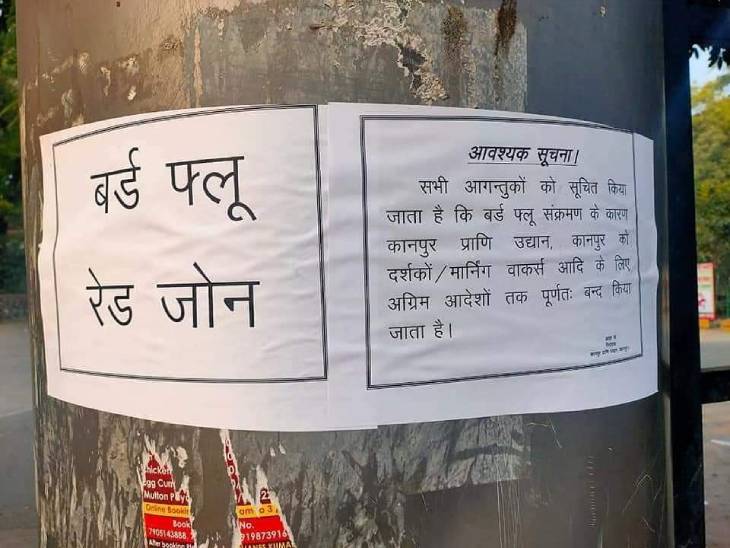 बर्ड फ्लू
रेड जोन
आवश्यक सूचना।
सभी आगन्तुकों को सूचित किया
जाता है कि बर्ड फ्लू संक्रमण के कारण
कानपुर प्राणि उद्यान, कानपुर को
दर्शकों/मार्निंग वाकर्स आदि के लिए
अग्रिम आदेशों तक पूर्णतः बन्द किया
जाता है।
chicken
Egg Curry
Mutton
Online Booking
Book
7905143888
After booking
No.
HANES KUMAR